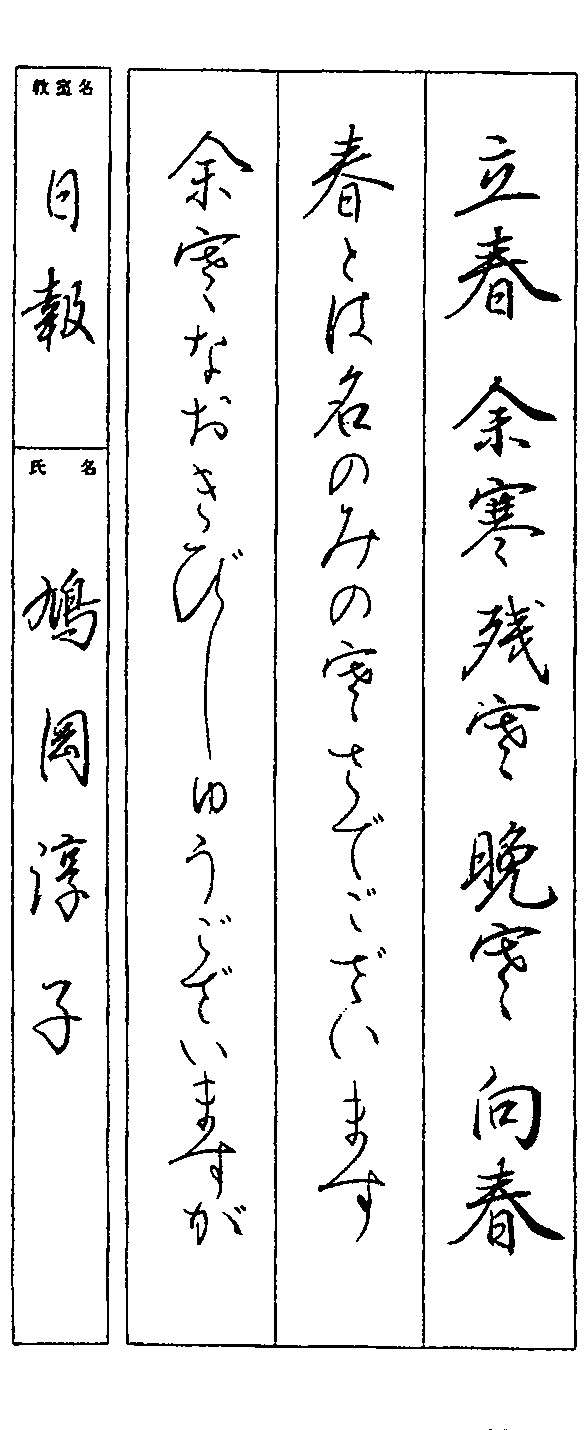 立春 余寒 残寒 晩寒 向春
春とは名のみの寒さでございます
余寒なおきびしゅうございますが
教室名
日報
氏名
鳩岡淳子